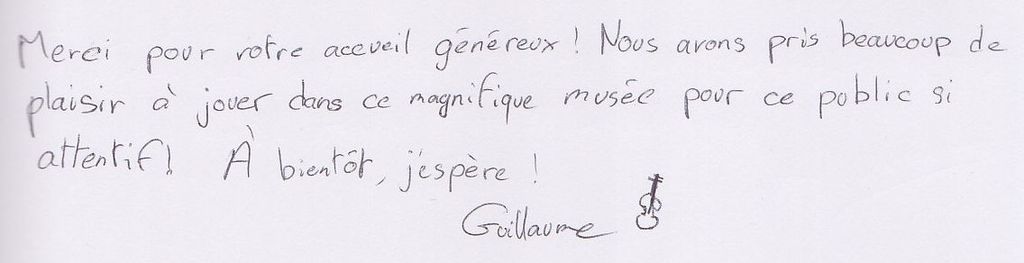 Merci pour votre accueil généreux ! Nous avons pris beaucoup de
plaisir à jouer dans ce magnifique musée pour ce public si
attentif ! À bientôt, j'espère !
Guillaume